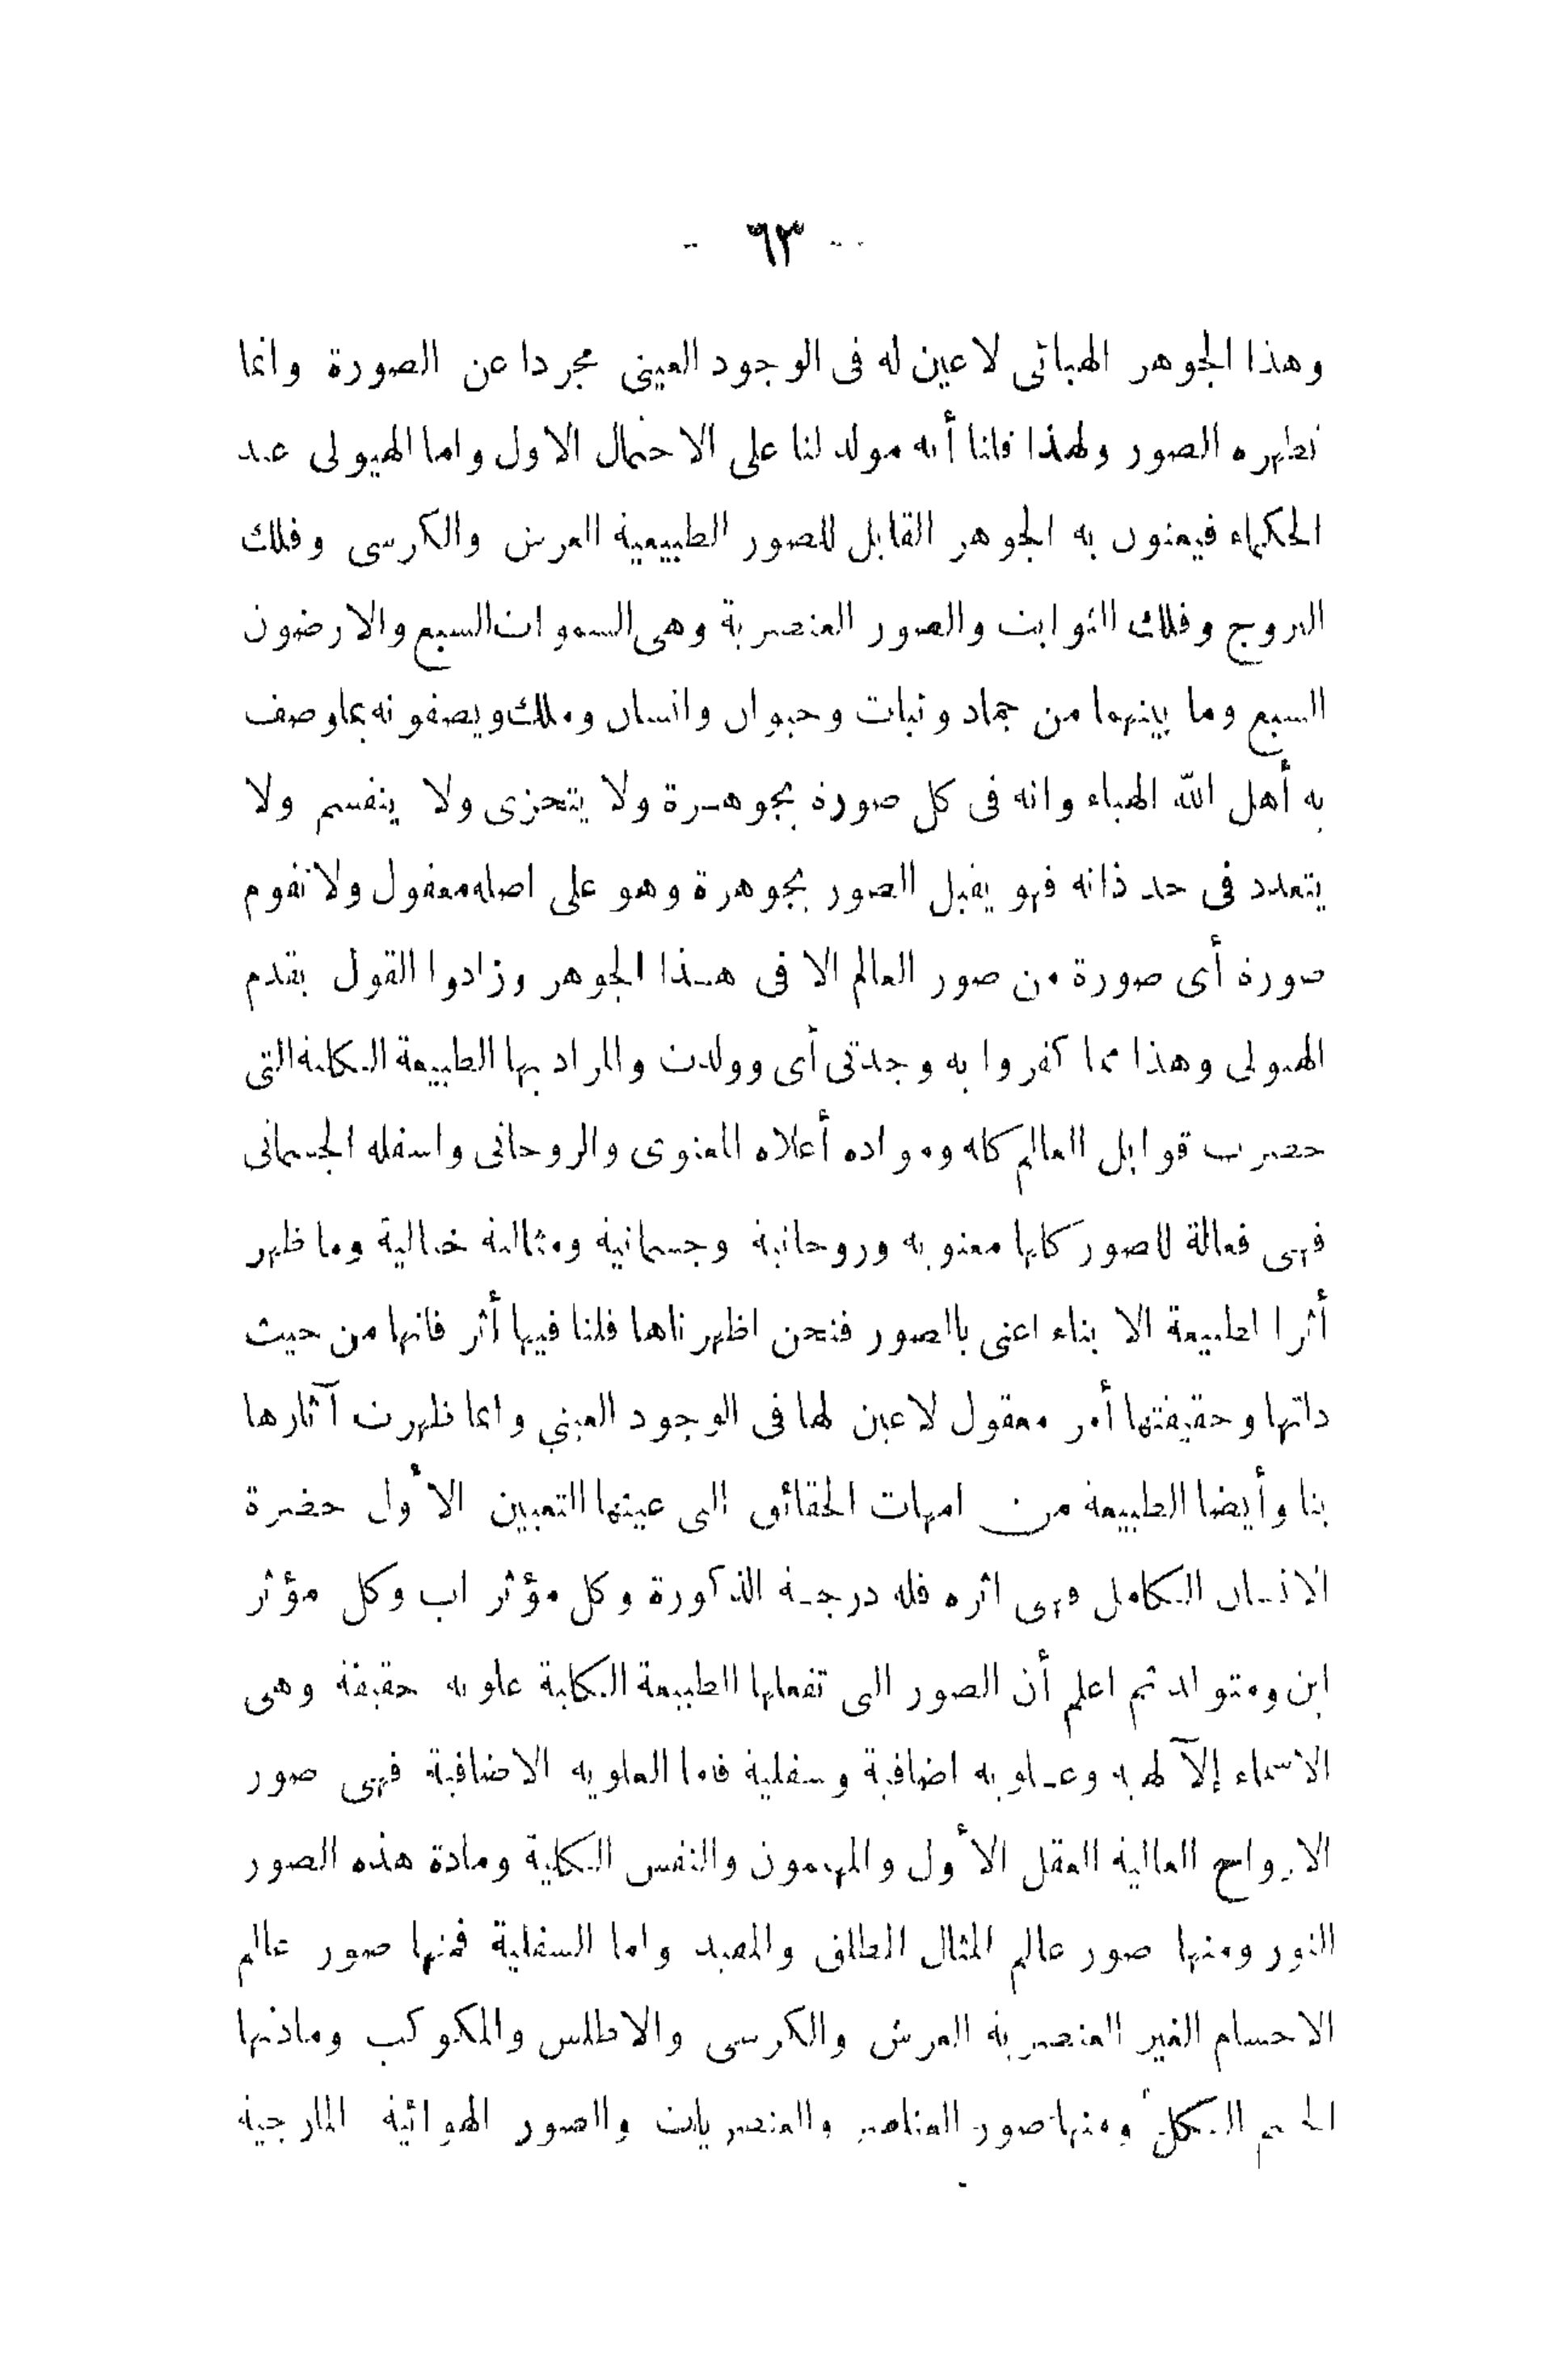 ٦٣
وهذا الجوهر الهبائى لاعين له فى الوجود العينى مجردا عن الصورة وانما
تظهره الصور ولهذا قلنا أنه مولد لنا على الاحتمال الاول واما الهيولى عند
الحكماء فيعنون به الجوهر القابل للصور الطبيعية العرش والكرسى وفلك
البروج وفلك الثوابت والصور العنصرية وهى السموات السبع والارضون
السبع وما بينهما من جماد ونبات وحيوان وانسان وملك ويصفونه بما وصف
به أهل الله الهباء وانه فى كل صورة بجوهرة ولا يتجزى ولا ينقسم ولا
يتعدد فى حد ذاته فهو يقبل الصور بجوهرة وهو على اصله معقول ولا تقوم
صورة أى صورة من صور العالم الا فى هذا الجوهر وزادوا القول بقدم
الهيولى وهذا مما كفروا به وجدتى أى وولدت والمراد بها الطبيعة الكلية التى
حصرت قوابل العالم كله ومواده أعلاه المعنوى والروحانى واسفله الجسمانى
فهى فعالة للصور كلها معنويه وروحانية وجسمانية ومثالية خيالية وما ظهر
أثر الطبيعة الا بناء اعنى بالصور فنحن اظهرناها فلنا فيها أثر فانها من حيث
ذاتها وحقيقتها أمر معقول لاعين لها فى الوجود العينى وانما ظهرت آثارها
بنا وأيضا الطبيعة من امهات الحقائق التى عينها التعيين الأول حضرة
الانسان الكامل فهى اثره فله درجة الذكورة وكل مؤثر اب وكل مؤثر
ابن ومتولد ثم اعلم أن الصور التى تفعلها الطبيعة الكلية علويه حقيقة وهى
الاسماء إلآلهيه وعلويه اضافية وسفلية فاما العلويه الاضافية فهى صور
الارواح العالية العقل الأول والمهيمون والنفس الكلية ومادة هذه الصور
النور ومنها صور عالم المثال المطلق والمقيد واما السفلية فمنها صور عالم
الاجسام الغير العنصريه العرش والكرسى والاطلس والمكوكب ومادتها
الجسم الكل ومنها صور العناصر والعنصريات والصور الهوائية المارجية